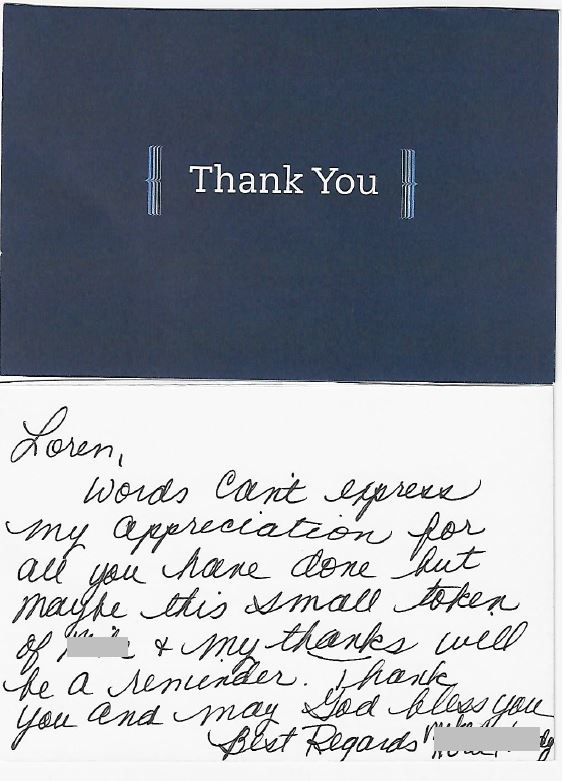 Thank You
Loren,
Words can't express
my appreciation for
all you have done but
maybe this small token
of & my thanks will
be a reminder. Thank
you and may God bless you
Best Regards